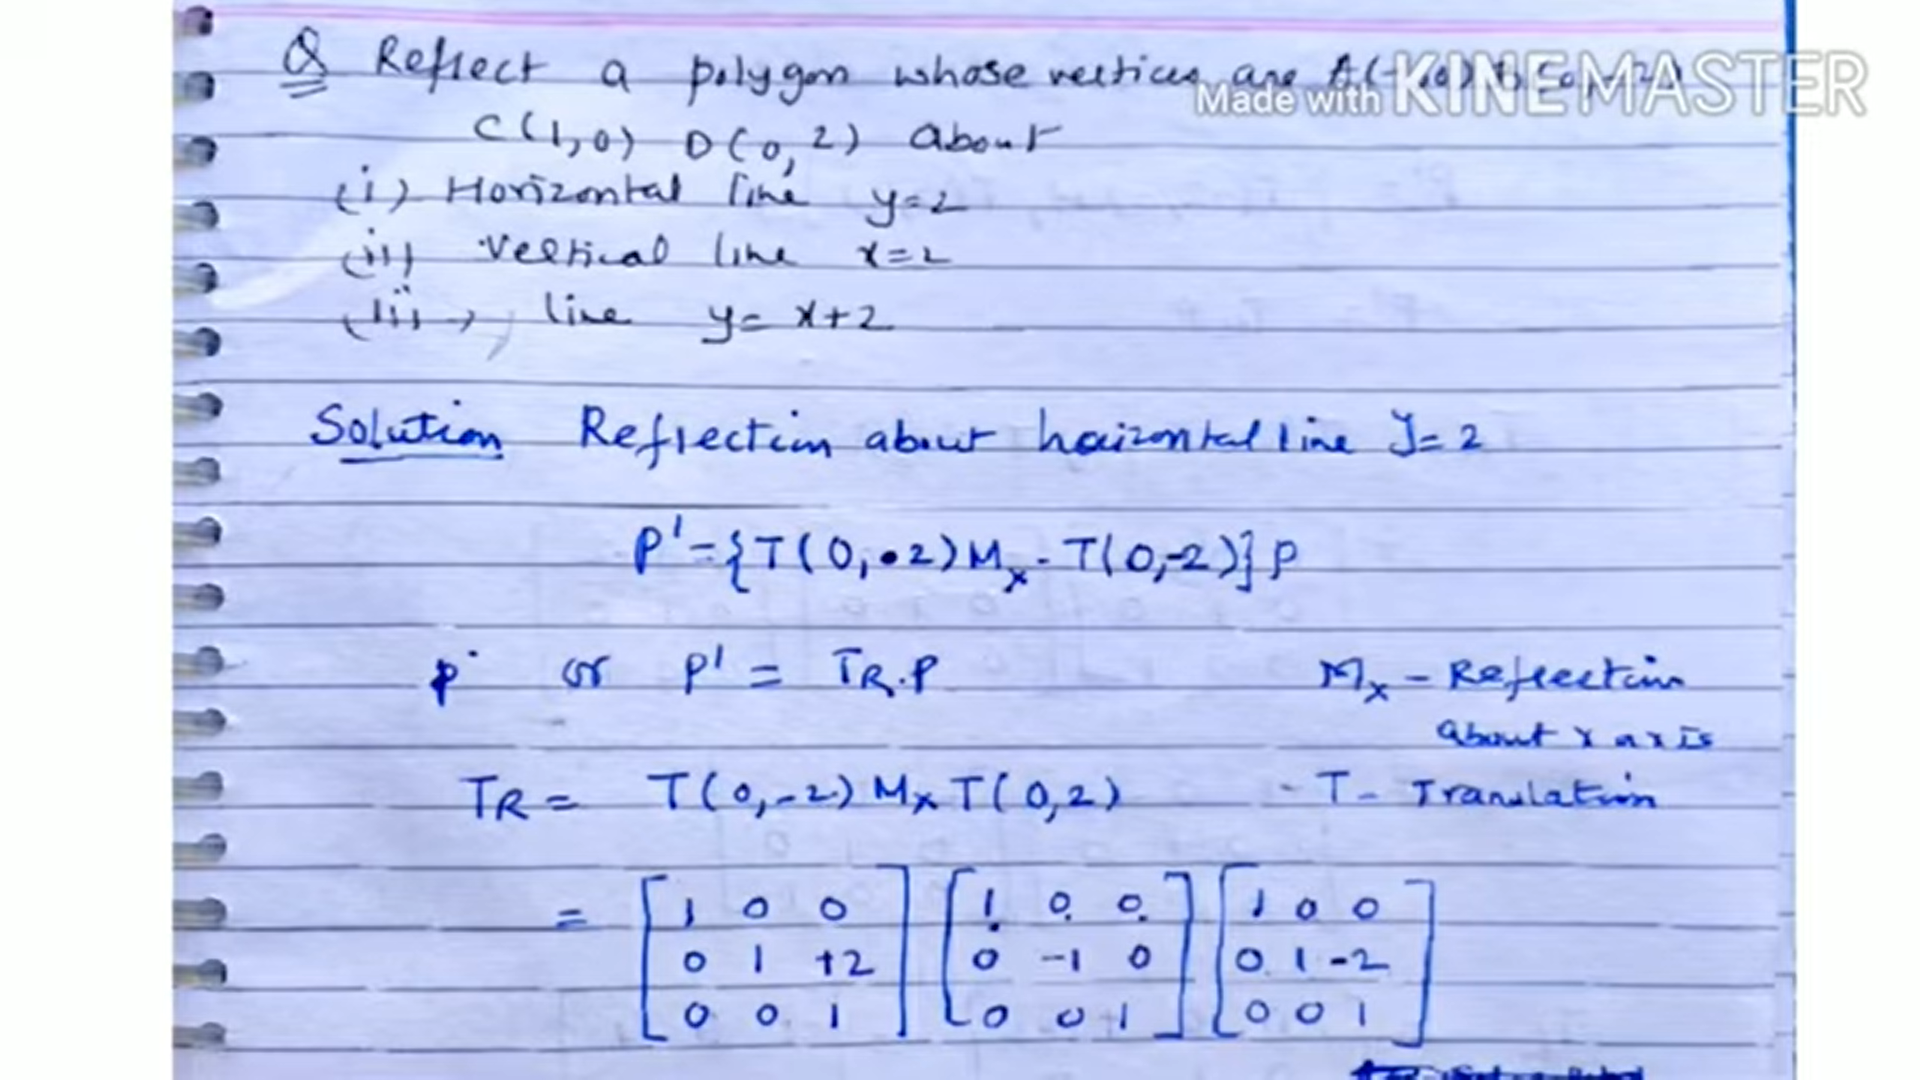 Q Reflect a polygon whose vertices are A(-1,0) B(0,-2)
Made with KINEMASTER
C(1,0) D(0,2) about
(i) Horizontal line y=2
(ii) Vertical line x=2
(iii) line y= x+2
Solution Reflection about horizontal line y=2
P'={T(0,2)Mx. T(0,-2)}P
P or P' = TR.P Mx - Reflection
about x axis
TR = T(0,-2) Mx T(0,2) - T - Translation
= [1 0 0 [1 0 0 [1 0 0
0 1 +2 0 -1 0 0 1 -2
0 0 1] 0 0 1] 0 0 1]